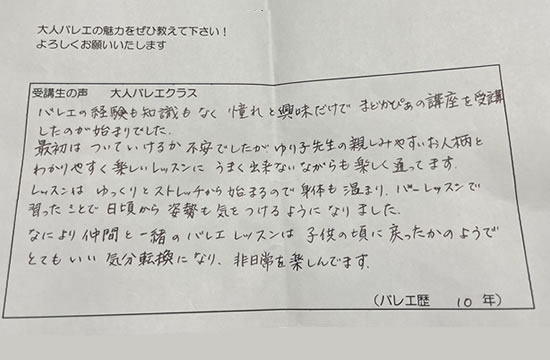 大人バレエの魅力をぜひ教えて下さい！
よろしくお願いいたします
受講生の声　大人バレエクラス
バレエの経験も知識もなく憧れと興味だけでまどかぴあの講座を受講
したのが始まりでした。
最初はついていけるか不安でしたがゆり子先生の親しみやすいお人柄と
わかりやすく楽しいレッスンにうまく出来ないながらも楽しく通ってます。
レッスンはゆっくりとストレッチから始まるので身体も温まり、バーレッスンで
習ったことで日頃から姿勢も気をつけるようになりました。
なにより仲間と一緒のバレエレッスンは子供の頃に戻ったかのようで
とてもいい気分転換になり、非日常を楽しんでます。
（バレエ歴　10 年）